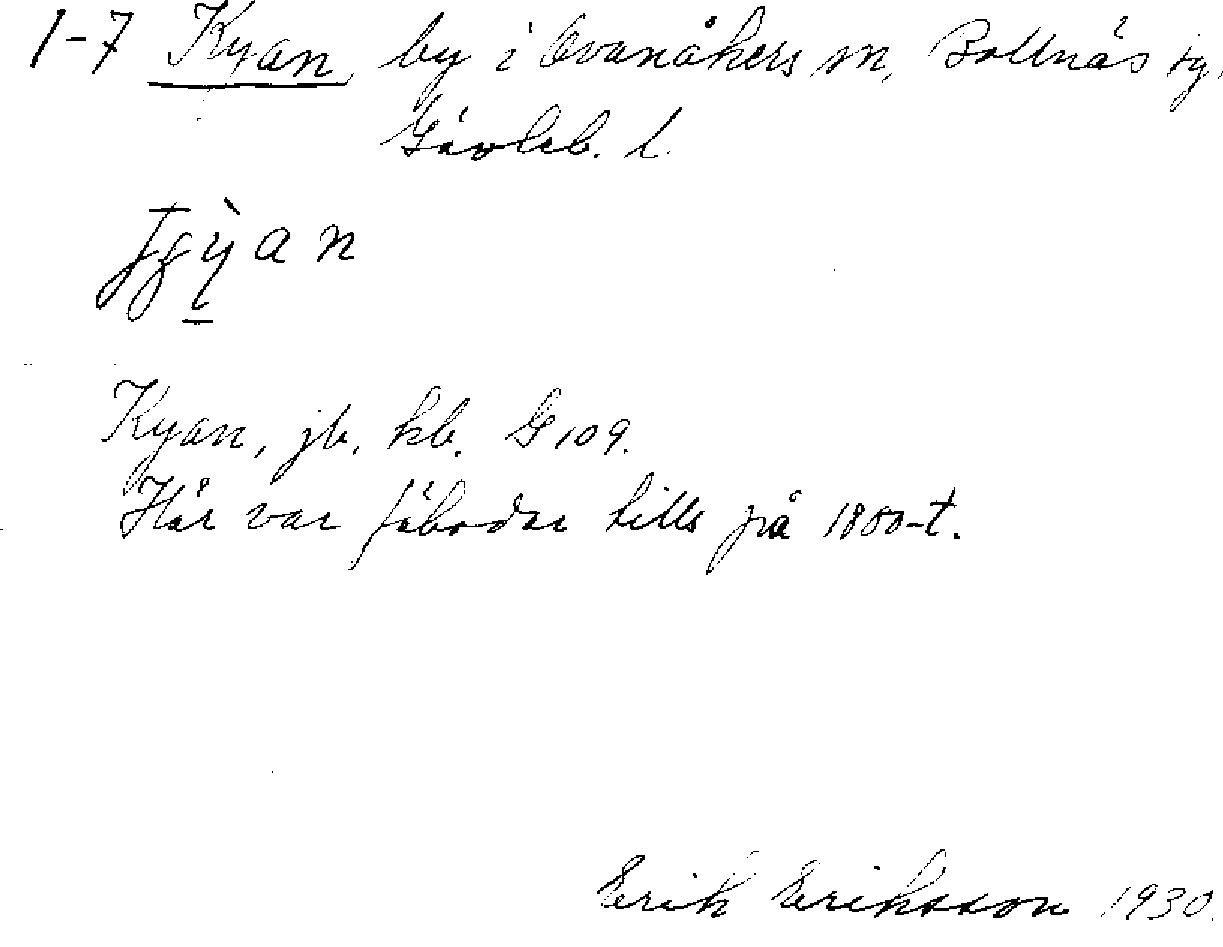 1-7 Kyan, by i Ovanåkers sn, Bollnäs tg,
Gävleb. l.
Kyan, jb. kb. G 109.
Här var fäbodar tills på 1800-t.
Erik Eriksson 1930.